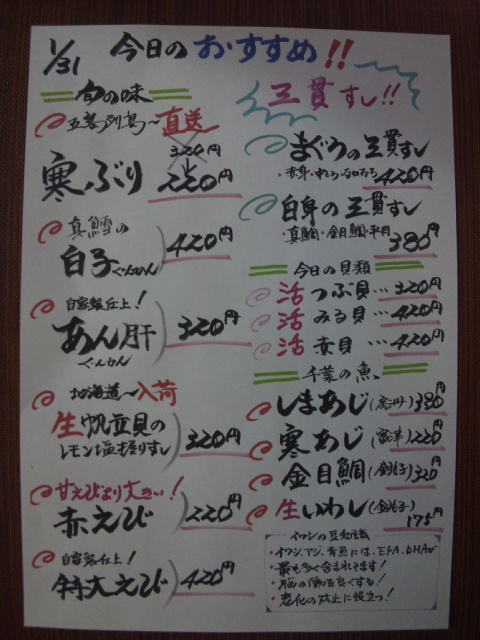 1/31 今日のおすすめ!!
旬の味
五島列島〜直送
寒ぶり 320円 220円
真鱈の
白子ぐんかん 420円
自家製仕上!
あん肝ぐんかん 320円
北海道〜入荷
生帆立貝の
レモン塩握りすし 320円
甘えびより大きい!
赤えび 220円
自家製仕上!
特大えび 420円
三貫すし!!
まぐろの三貫すし
・赤身・中とろ・ 420円
白身の三貫すし
・真鯛・金目鯛・平目 380円
今日の貝類
活つぶ貝…320円
活みる貝…420円
活赤貝…420円
千葉の魚
しまあじ 380円
寒あじ(富津)220円
金目鯛(銚子)320円
生いわし(銚子)175円
イワシの豆知識
・イワシ、アジ、青魚には、EPA、DHAが
・最も多く含まれてます!
・脳の働を良くする!
・老化の防止に役立つ!